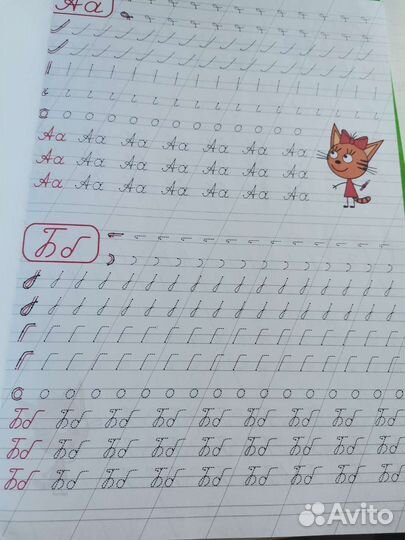 Аа
Аа Аа Аа Аа Аа Аа Аа
Аа Аа Аа Аа Аа Аа Аа
Аа Аа Аа Аа Аа Аа Аа
Бб
Бб Бб Бб Бб Бб Бб Бб Бб Бб
Бб Бб Бб Бб Бб Бб Бб Бб Бб
Бб Бб Бб Бб Бб Бб Бб Бб Бб
Avito